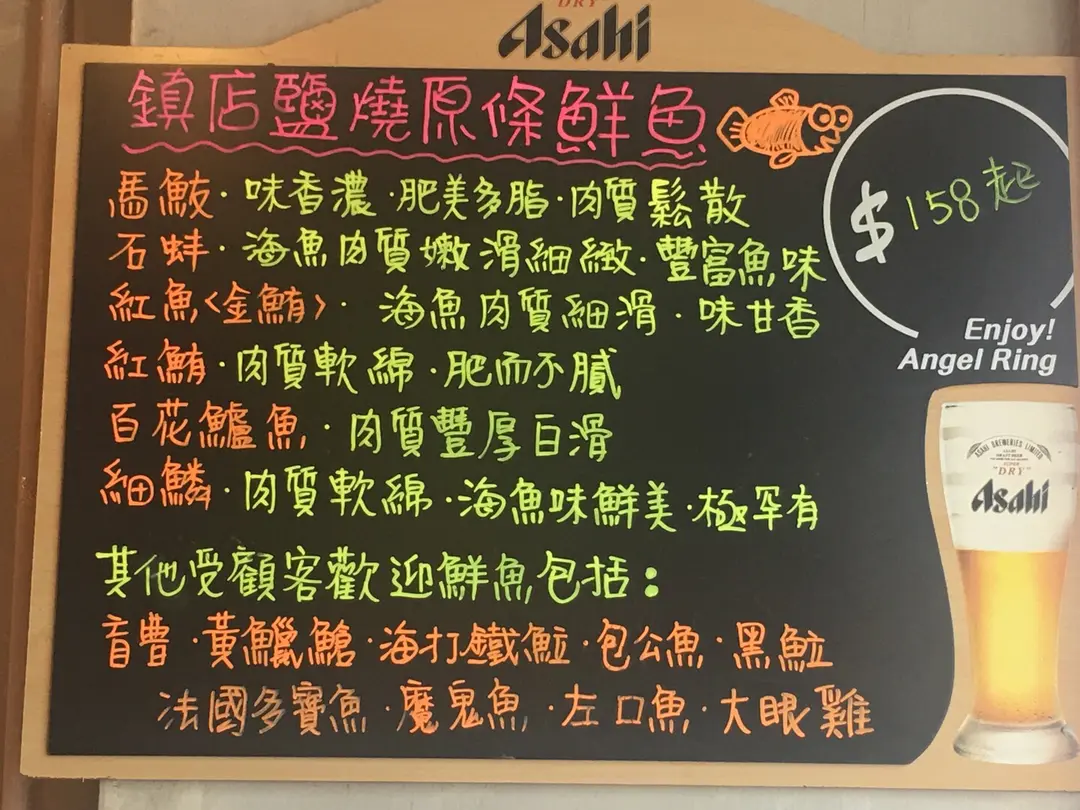 "DRY"
Asahi
鎮店鹽燒原條鮮魚
$158起
馬鮫·味香濃·肥美多脂·肉質鬆散
石蚌·海魚肉質嫩滑細緻·豐富魚味
紅魚<金鮪>·海魚肉質細滑·味甘香
紅鮪·肉質軟綿·肥而不膩
百花鱸魚·肉質豐厚白滑
細鱗·肉質軟綿·海魚味鮮美·極罕有
其他受顧客歡迎鮮魚包括：
盲曹·黃鱲鱠·海打鐵䱀·包公魚·黑䱀
法國多寶魚·魔鬼魚·左口魚·大眼雞
Enjoy!
Angel Ring
ASAHI BREWERIES LIMITED
SUPER
"DRY"
Asahi